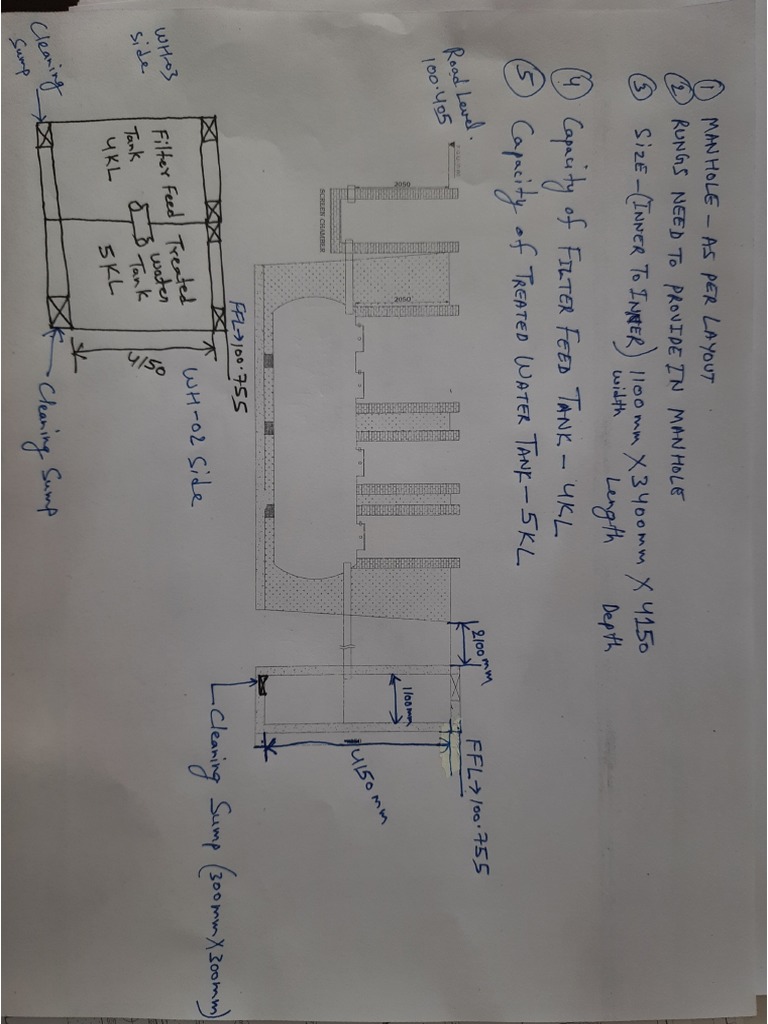 ① MANHOLE - AS PER LAYOUT
② RUNGS NEED TO PROVIDE IN MANHOLE
③ SIZE - (INNER TO INNER) 1100mm X 3400mm X 4150
Width Length Depth
④ Capacity of FILTER FEED TANK - 4KL
⑤ Capacity of TREATED WATER TANK - 5KL
Road Level.
100.405
2050
BORLEH CHAMBER
2050
2100mm
1100mm
FFL→100.755
4150 mm
Cleaning Sump (300mm X 300mm)
WH-03
side
Cleaning
Sump
Filter Feed
Tank
4KL
Treated
Water
Tank
5KL
FFL→100.755
4150
WH-02 Side
Cleaning Sump